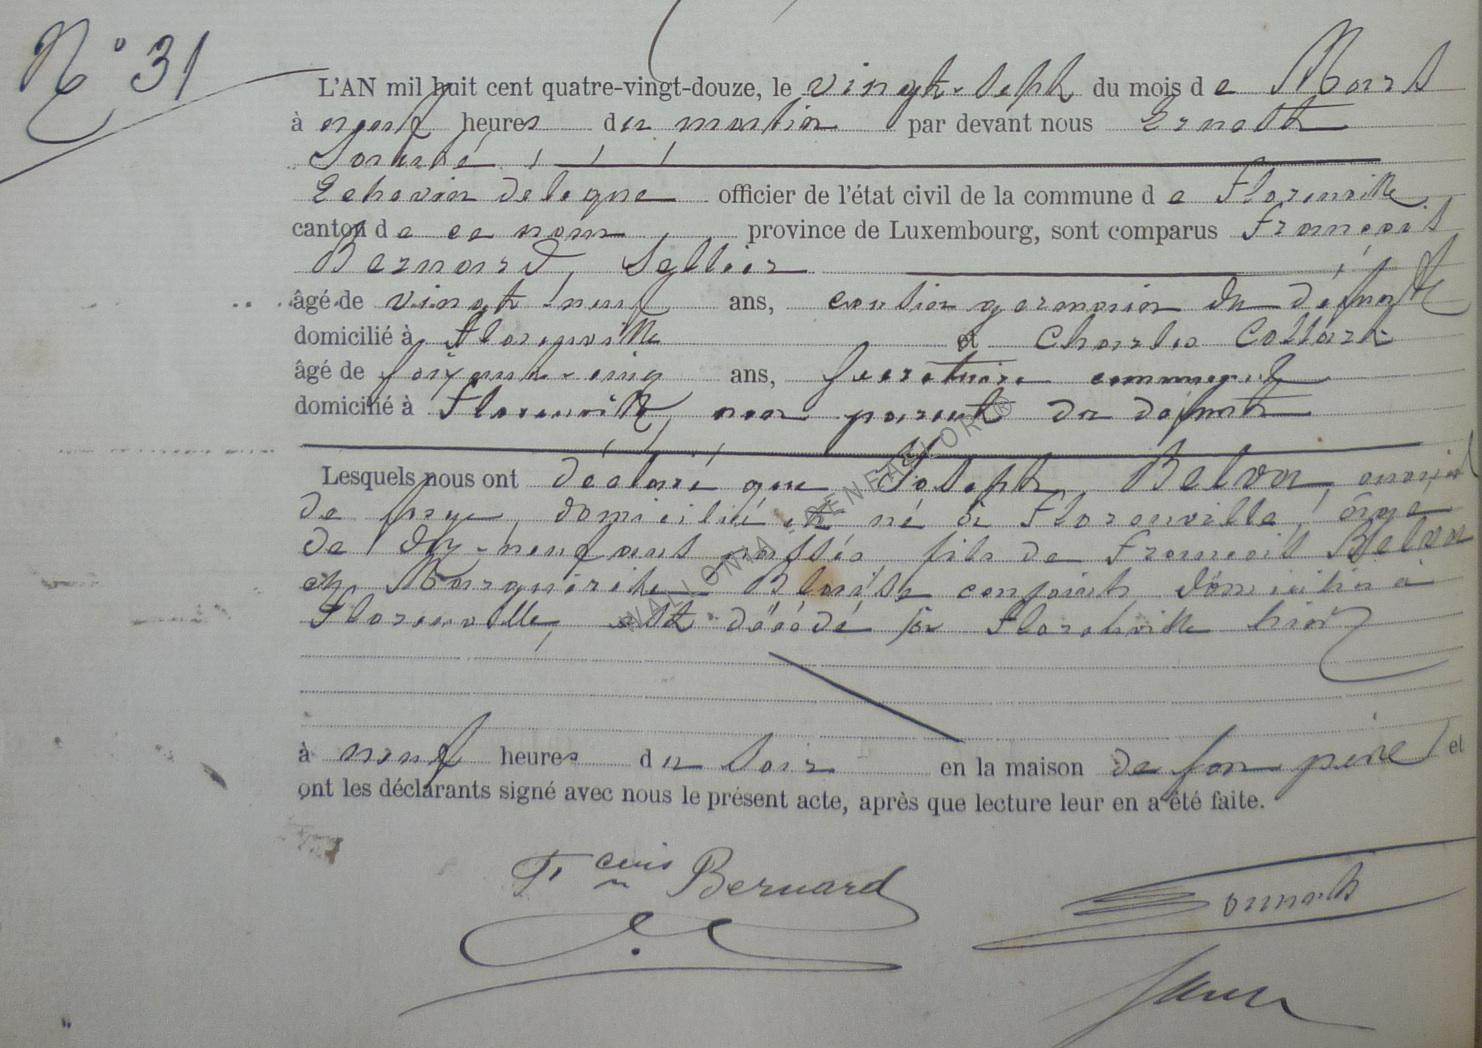 N° 31
L'AN mil huit cent quatre-vingt-douze, le vingt-sept du mois de Mars
à neuf heures du matin par devant nous Ernest
Echevin délégué officier de l'état civil de la commune de Florenville
canton de ce nom province de Luxembourg, sont comparus François
Bernard, Sellier
âgé de vingt neuf ans, cousin germain du défunt
domicilié à Florenville et Charles
âgé de soixante-cinq ans, Secrétaire communal
domicilié à Florenville, non parent du défunt
Lesquels nous ont déclaré que Joseph Belva, ouvrier
de forge, domicilié et né à Florenville, âgé
de dix-neuf ans passés fils de François Belva
et Marguerite conjoints domiciliés à
Florenville, est décédé à Florenville hier
à neuf heures du soir en la maison de son père et
ont les déclarants signé avec nous le présent acte, après que lecture leur en a été faite.
WALLONIA - GENEANOR
Fcois Bernard